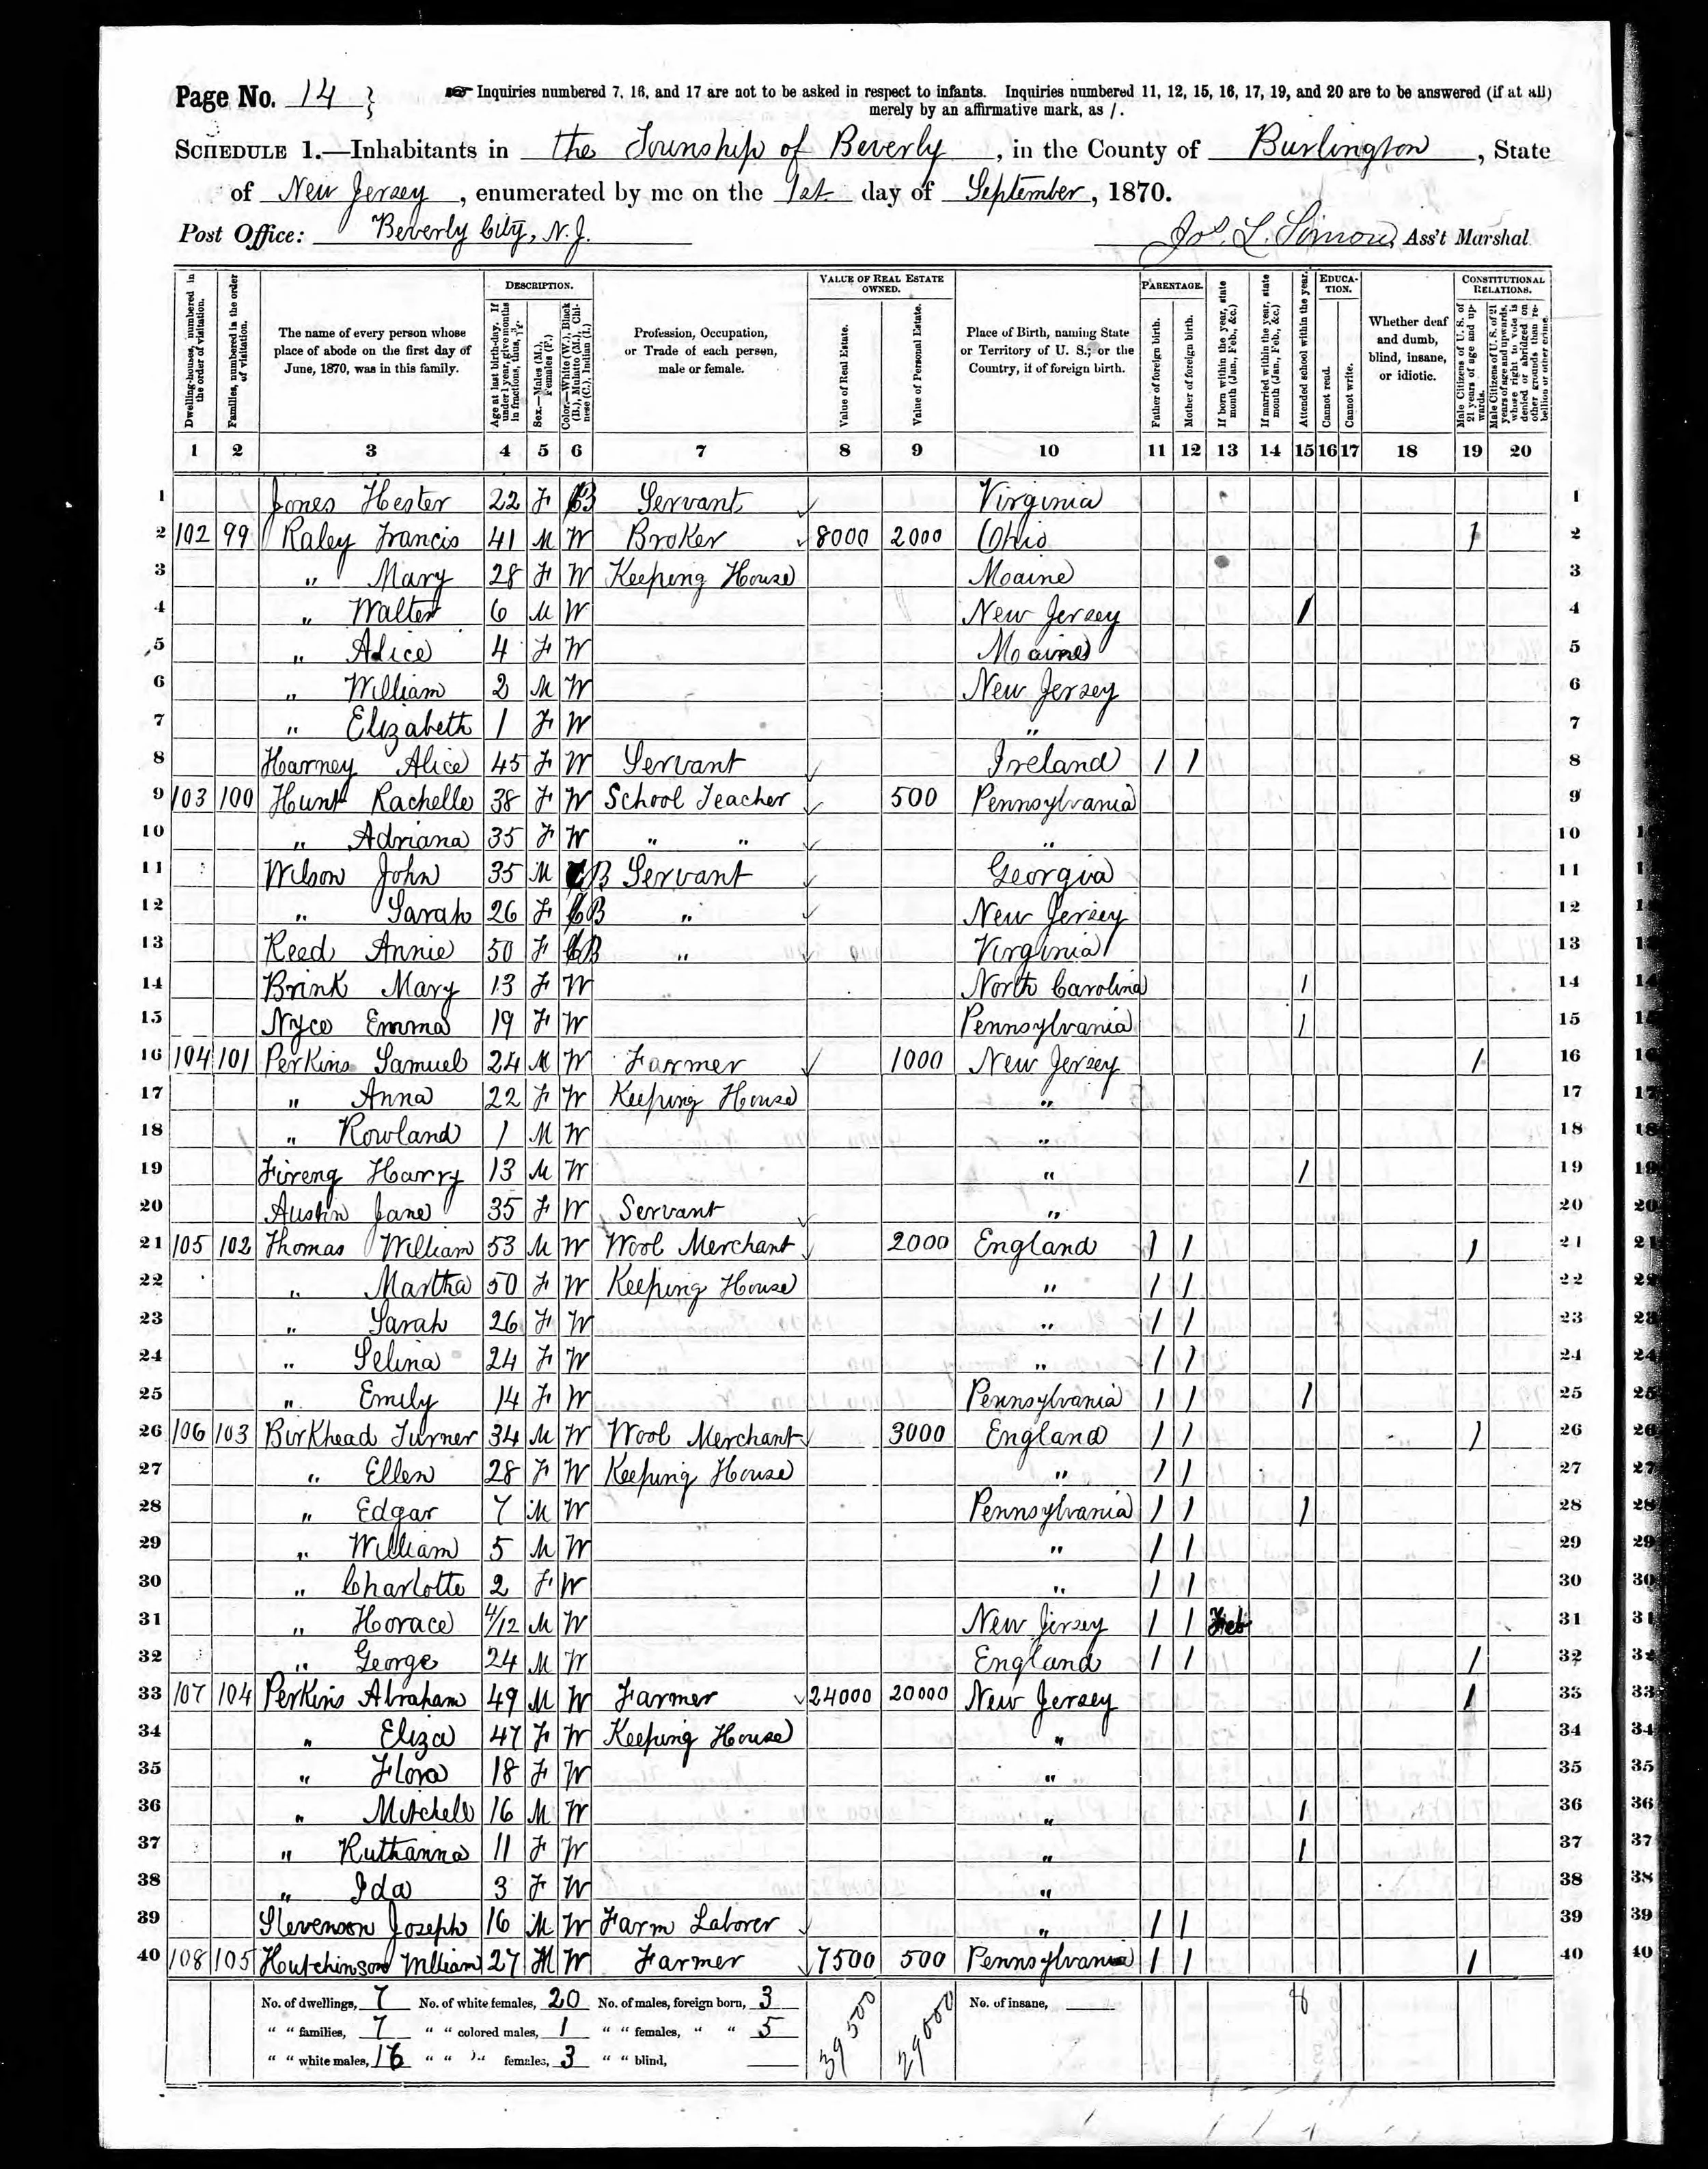 Page No. 14 } Inquiries numbered 7, 16, and 17 are not to be asked in respect to infants. Inquiries numbered 11, 12, 15, 16, 17, 19, and 20 are to be answered (if at all)
merely by an affirmative mark, as /.
SCHEDULE 1.—Inhabitants in the Township of Beverly, in the County of Burlington, State
of New Jersey, enumerated by me on the 1st day of September, 1870.
Post Office: Beverly City, N.J. Jos. L. Simons, Ass't Marshal.
Dwelling-houses, numbered in the order of visitation. Families, numbered in the order of visitation. The name of every person whose place of abode on the first day of June, 1870, was in this family. DESCRIPTION. Age at last birth-day. If under 1 year, give months in fractions, thus, 3/12. Sex.—Males (M.), Females (F.). Color.—White (W.), Black (B.), Mulatto (M.), Chinese (C.), Indian (I.) Profession, Occupation, or Trade of each person, male or female. VALUE OF REAL ESTATE OWNED. Value of Real Estate. Value of Personal Estate. Place of Birth, naming State or Territory of U. S.; or the Country, if of foreign birth. PARENTAGE. Father of foreign birth. Mother of foreign birth. If born within the year, state month (Jan., Feb., &c.) If married within the year, state month (Jan., Feb., &c.) Attended school within the year. EDUCATION. Cannot read. Cannot write. Whether deaf and dumb, blind, insane, or idiotic. CONSTITUTIONAL RELATIONS. Male Citizens of U. S. of 21 years of age and upwards. Male Citizens of U. S. of 21 years of age and upwards, whose right to vote is denied or abridged on other grounds than rebellion or other crime.
1 2 3 4 5 6 7 8 9 10 11 12 13 14 15 16 17 18 19 20
1 Jones Hester 22 F B Servant Virginia 1
2 102 99 Raley Francis 41 M W Broker 8000 2000 Ohio / 2
3 " Mary 28 F W Keeping House Moaine 3
4 " Walter 6 M W New Jersey / 4
5 " Alice 4 F W Moaine 5
6 " William 2 M W New Jersey 6
7 " Elizabeth 1 F W " 7
8 Harney Alice 45 F W Servant Ireland / / 8
9 103 100 Hunt Rachelle 38 F W School Teacher 500 Pennsylvania 9
10 " Adriana 35 F W " " " 10
11 Wilson John 35 M B Servant Georgia 11
12 " Sarah 26 F B " New Jersey 12
13 Reed Annie 50 F B " Virginia 13
14 Brink Mary 13 F W North Carolina / 14
15 Nyce Emma 19 F W Pennsylvania / 15
16 104 101 Perkins Samuel 24 M W Farmer 1000 New Jersey / 16
17 " Anna 22 F W Keeping House " 17
18 " Rowland 1 M W " 18
19 Fireng Harry 13 M W " / 19
20 Austin Jane 35 F W Servant " 20
21 105 102 Thomas William 53 M W Wool Merchant 2000 England / / / 21
22 " Martha 50 F W Keeping House " / / 22
23 " Sarah 26 F W " / / 23
24 " Selina 24 F W " / / 24
25 " Emily 14 F W Pennsylvania / / / 25
26 106 103 Birkhead Turner 34 M W Wool Merchant 3000 England / / / 26
27 " Ellen 28 F W Keeping House " / / 27
28 " Edgar 7 M W Pennsylvania / / / 28
29 " William 5 M W " / / 29
30 " Charlotte 2 F W " / / 30
31 " Horace 4/12 M W New Jersey / / Feb 31
32 " George 24 M W England / / / 32
33 107 104 Perkins Abraham 49 M W Farmer 24000 20000 New Jersey / 33
34 " Eliza 47 F W Keeping House " 34
35 " Flora 18 F W " 35
36 " Mitchell 16 M W " / 36
37 " Ruthanna 11 F W " / 37
38 " Ida 3 F W " 38
39 Stevenson Joseph 16 M W Farm Laborer " / / 39
40 108 105 Hutchinson William 27 M W Farmer 7500 500 Pennsylvania / / / 40
No. of dwellings, 7 No. of white females, 20 No. of males, foreign born, 3 39500 29000 No. of insane, 8
" " families, 7 " " colored males, 1 " " females, " " 5
" " white males, 16 " " " females, 3 " " blind,